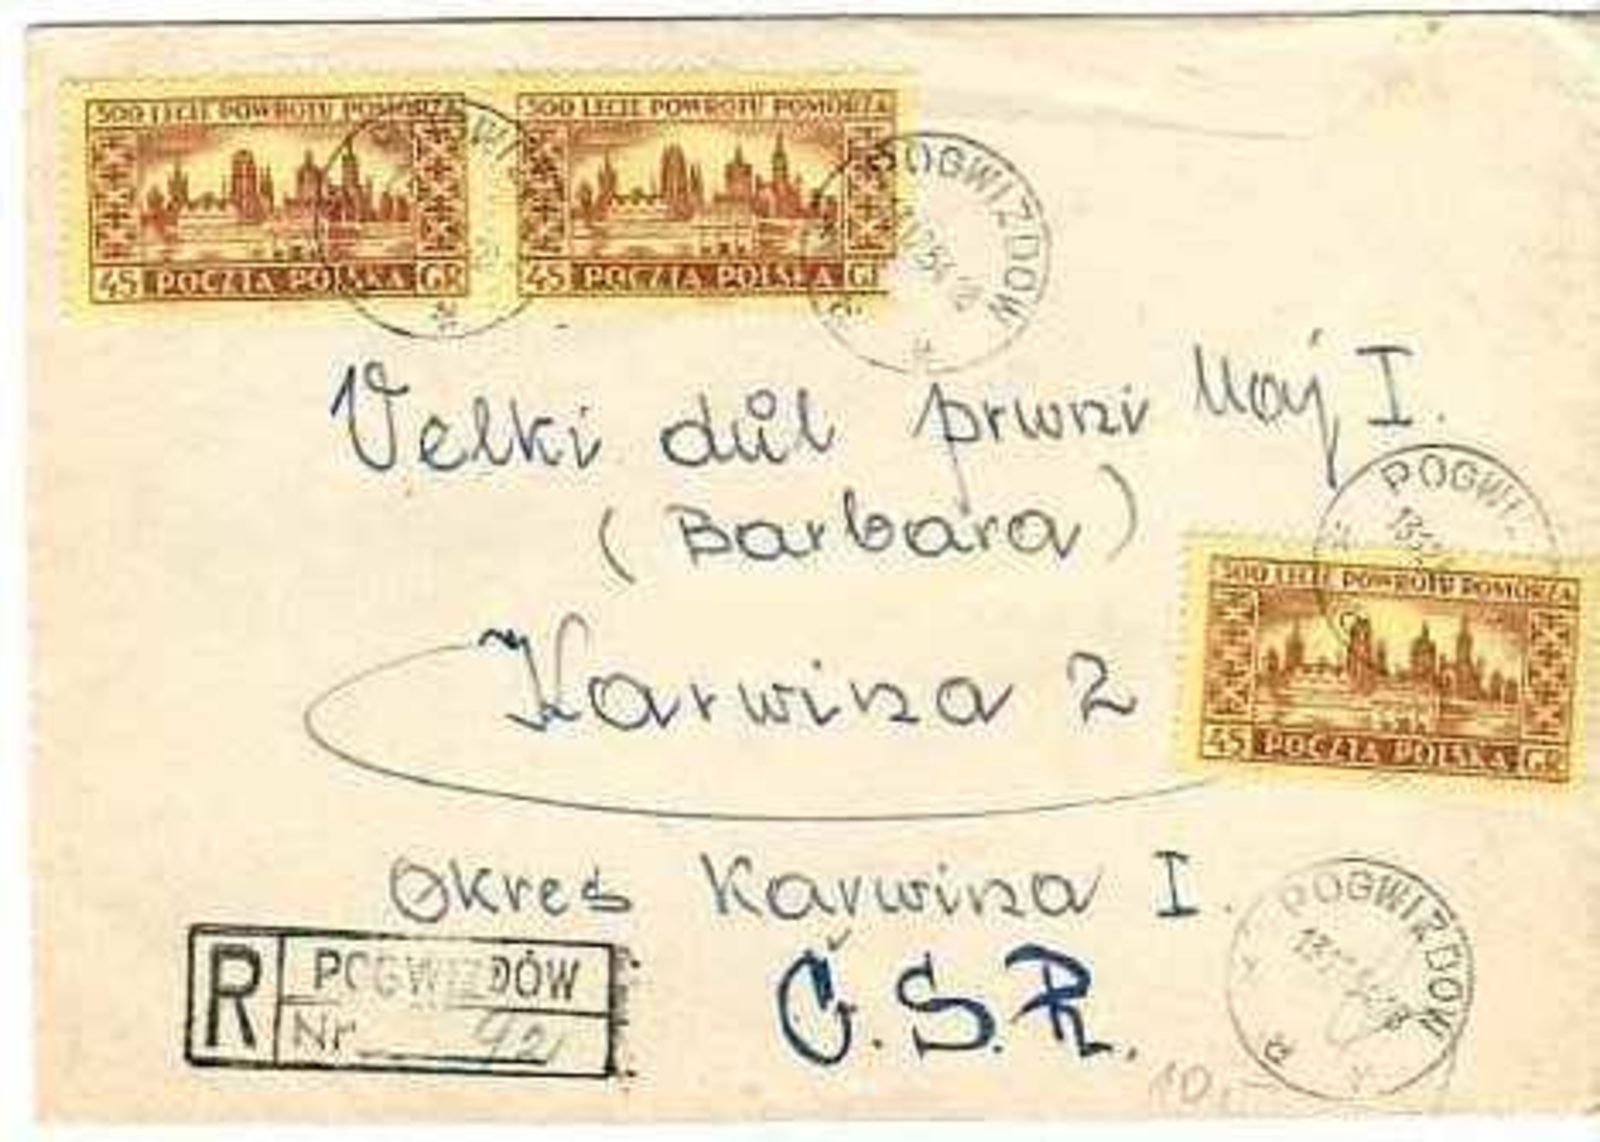 500 LECIE POWROTU POMORZA
45 POCZTA POLSKA GR
500 LECIE POWROTU POMORZA
45 POCZTA POLSKA GR
POGWIZDÓW
Velki důl prwni Maj I.
(Barbara)
POGWI
500 LECIE POWROTU POMORZA
45 POCZTA POLSKA GR
Karwina 2
Okres Karwina I.
Č.S.R.
R POGWIZDÓW
Nr 42
POGWIZDÓW
10